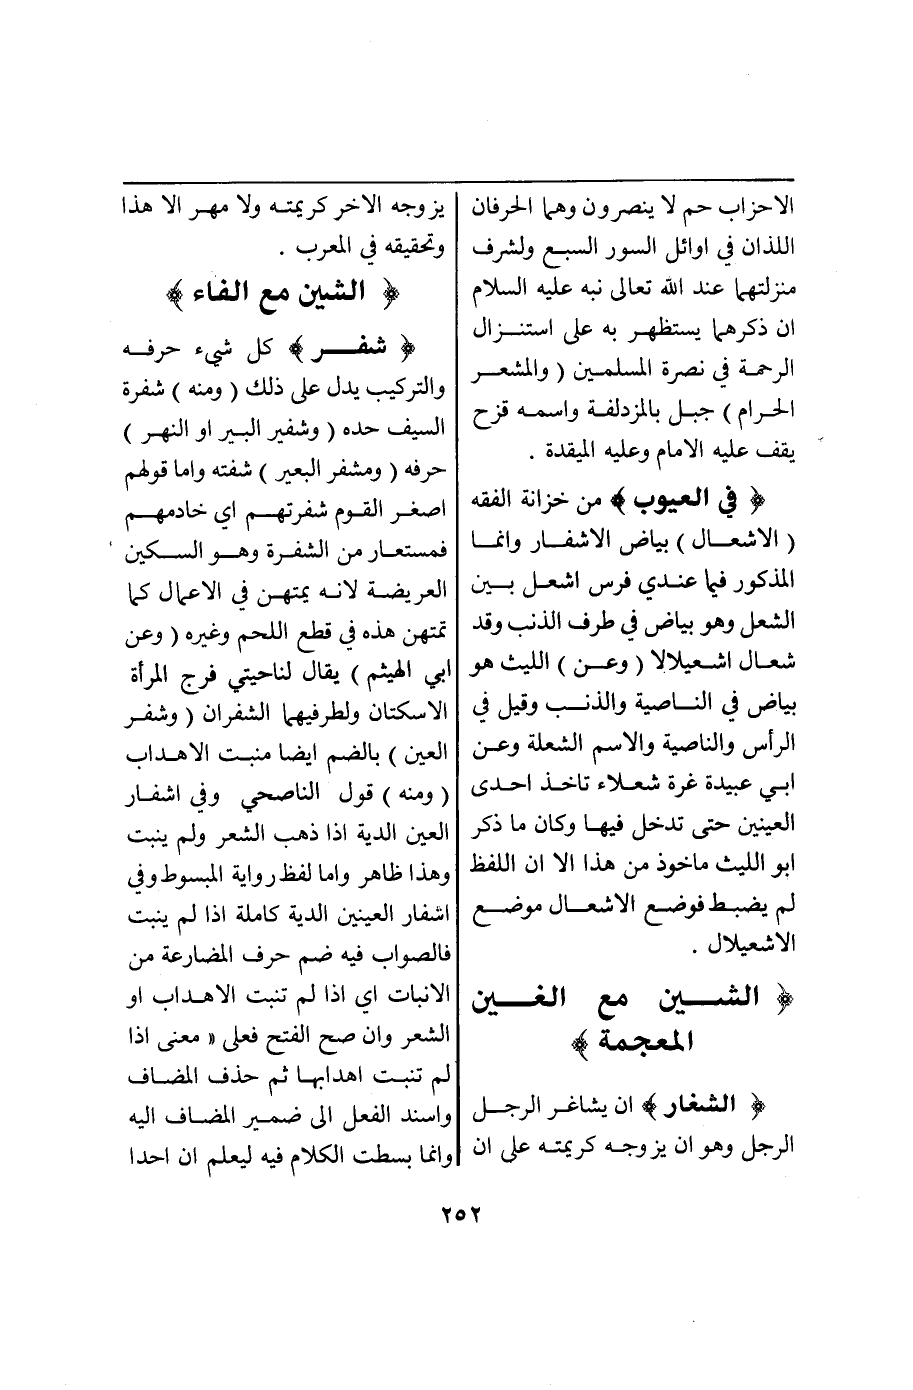 الاحزاب حم لا ينصرون وهما الحرفان
اللذان في اوائل السور السبع ولشرف
منزلتهما عند الله تعالى نبه عليه السلام
ان ذكرهما يستظهر به على استنزال
الرحمة في نصرة المسلمين ( والمشعر
الحرام ) جبل بالمزدلفة واسمه قزح
يقف عليه الامام وعليه الميقدة .
﴿ في العيوب ﴾ من خزانة الفقه
( الاشعال ) بياض الاشفار وانما
المذكور فيما عندي فرس اشعل بين
الشعل وهو بياض في طرف الذنب وقد
شعال اشعيلالا ( وعن ) الليث هو
بياض في الناصية والذنب وقيل في
الرأس والناصية والاسم الشعلة وعن
ابي عبيدة غرة شعلاء تاخذ احدى
العينين حتى تدخل فيها وكان ما ذكر
ابو الليث ماخوذ من هذا الا ان اللفظ
لم يضبط فوضع الاشعال موضع
الاشعيلال .
﴿ الشين مع الغين
المعجمة ﴾
﴿ الشغار ﴾ ان يشاغر الرجل
الرجل وهو ان يزوجه كريمته على ان
يزوجه الاخر كريمته ولا مهر الا هذا
وتحقيقه في المعرب .
﴿ الشين مع الفاء ﴾
﴿ شفر ﴾ كل شيء حرفه
والتركيب يدل على ذلك ( ومنه ) شفرة
السيف حده ( وشفير البير او النهر )
حرفه ( ومشفر البعير ) شفته واما قولهم
اصغر القوم شفرتهم اي خادمهم
فمستعار من الشفرة وهو السكين
العريضة لانه يمتهن في الاعمال كما
تمتهن هذه في قطع اللحم وغيره ( وعن
ابي الهيثم ) يقال لناحيتي فرج المرأة
الاسكتان ولطرفيهما الشفران ( وشفر
العين ) بالضم ايضا منبت الاهداب
( ومنه ) قول الناصحي وفي اشفار
العين الدية اذا ذهب الشعر ولم ينبت
وهذا ظاهر واما لفظ رواية المبسوط وفي
اشفار العينين الدية كاملة اذا لم ينبت
فالصواب فيه ضم حرف المضارعة من
الانبات اي اذا لم تنبت الاهداب او
الشعر وان صح الفتح فعلى « معنى اذا
لم تنبت اهدابها ثم حذف المضاف
واسند الفعل الى ضمير المضاف اليه
وانما بسطت الكلام فيه ليعلم ان احدا
٢٥٢